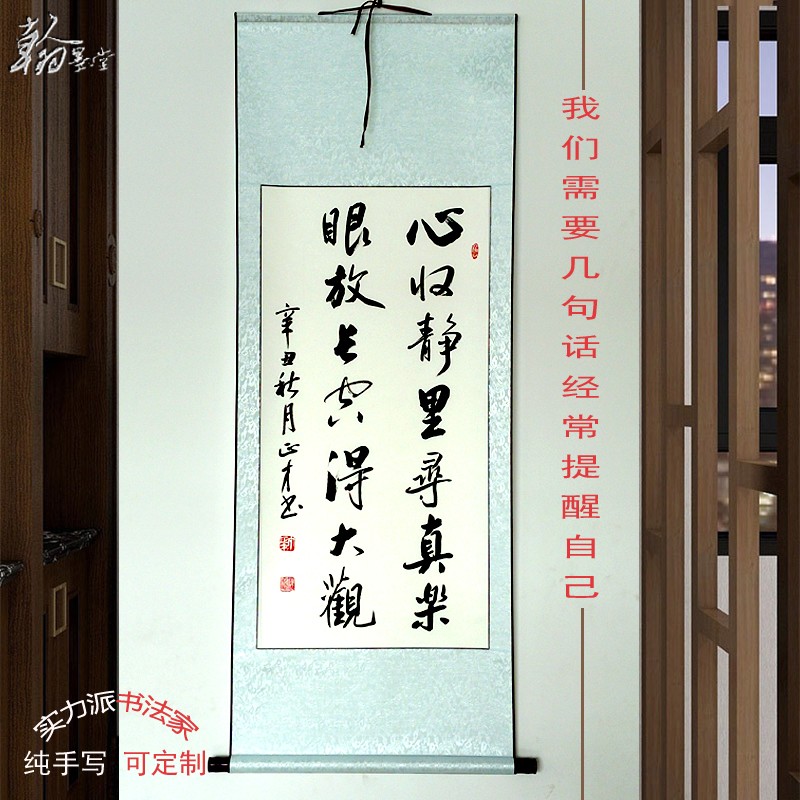 翰墨堂
心收静里尋真樂
眼放长空得大觀
辛丑秋月正才书
我们需要几句话经常提醒自己
实力派书法家
纯手写 可定制